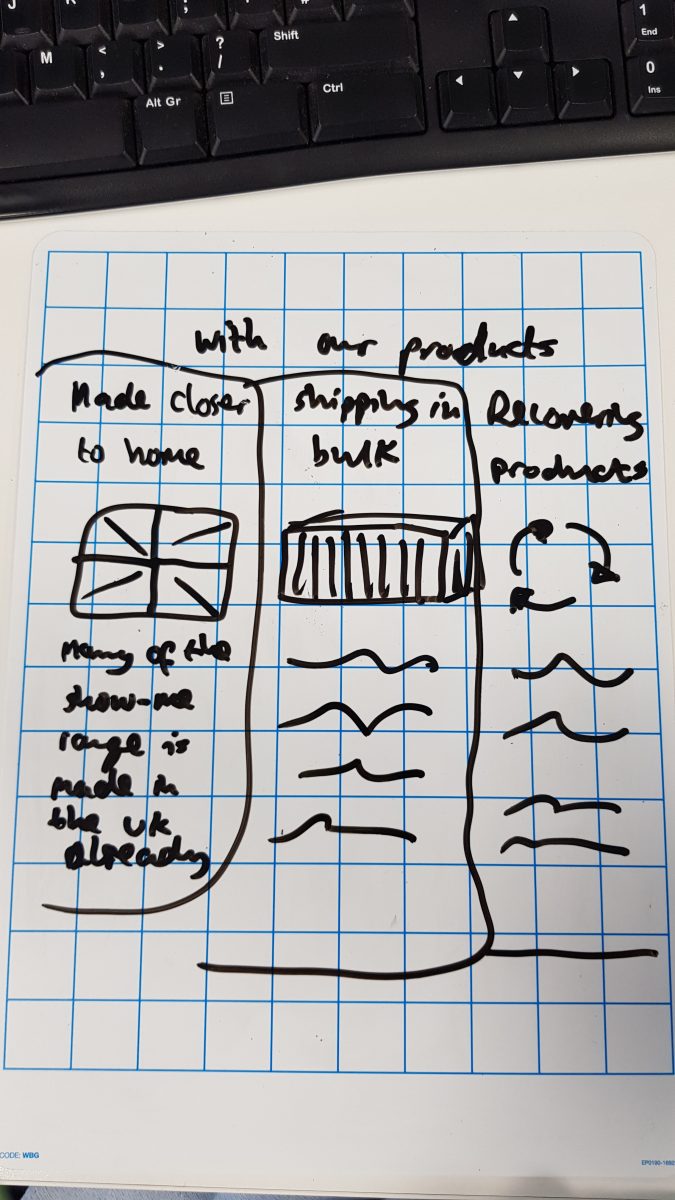 Shift
M
<
,
>
.
?
/
Alt Gr
Ctrl
1
End
0
Ins
with our products
Made closer to home
shipping in bulk
Recovering products
Many of the
show-me
range is
made in
the UK
already
CODE: WBG